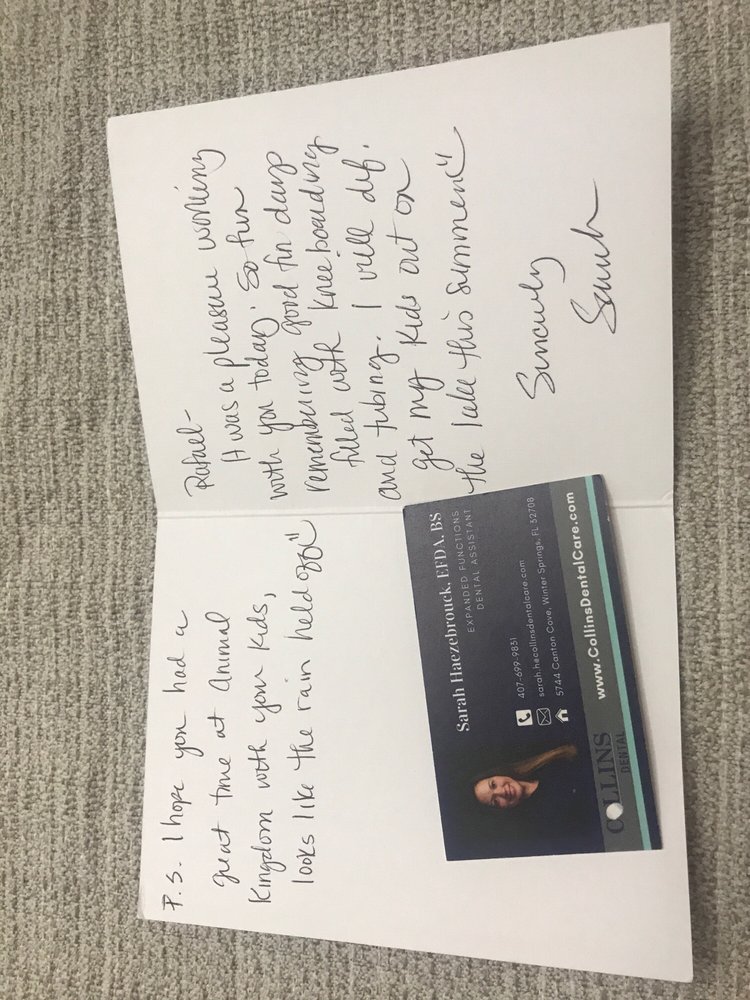 Rafael-
It was a pleasure working
with you today. So fun
remembering good fun days
filled with kneeboarding
and tubing. I will def.
get my kids out on
the lake this summer
Sincerely
Sarah
P.S. I hope you had a
great time at Animal
Kingdom with your kids,
looks like the rain held off
Sarah Haezebrouck, EFDA, BS
EXPANDED FUNCTIONS
DENTAL ASSISTANT
407-699-9831
sarah.h@collinsdentalcare.com
5744 Canton Cove, Winter Springs, FL 32708
www.CollinsDentalCare.com
COLLINS
DENTAL